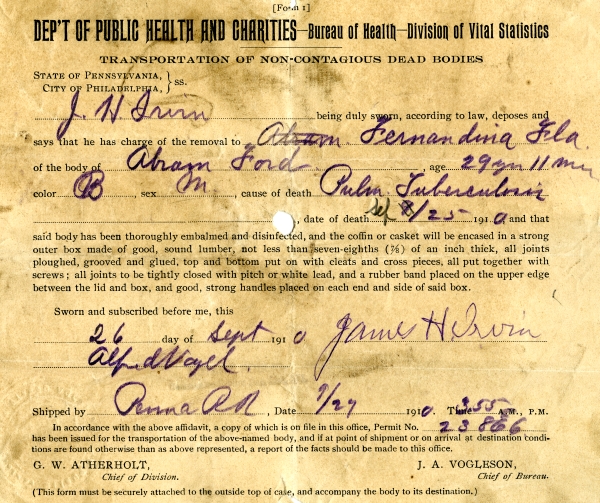 [Form 1]
DEP'T OF PUBLIC HEALTH AND CHARITIES—Bureau of Health—Division of Vital Statistics
TRANSPORTATION OF NON-CONTAGIOUS DEAD BODIES
STATE OF PENNSYLVANIA,
CITY OF PHILADELPHIA, } ss.
J. H. Irvin being duly sworn, according to law, deposes and
says that he has charge of the removal to Abram Fernandina Fla
of the body of Abram Ford, age 29 yrs 11 mo
color B sex M, cause of death Pulm. Tuberculosis
, date of death Sep 25 1910 and that
said body has been thoroughly embalmed and disinfected, and the coffin or casket will be encased in a strong
outer box made of good, sound lumber, not less than seven-eighths (⅞) of an inch thick, all joints
ploughed, grooved and glued, top and bottom put on with cleats and cross pieces, all put together with
screws; all joints to be tightly closed with pitch or white lead, and a rubber band placed on the upper edge
between the lid and box, and good, strong handles placed on each end and side of said box.
Sworn and subscribed before me, this
26 day of Sept 1910 James H Irvin
Alfred Vogel
Shipped by Penna RR, Date 9/27 1910. Time 3 55 A.M., P.M.
In accordance with the above affidavit, a copy of which is on file in this office, Permit No. 23866
has been issued for the transportation of the above-named body, and if at point of shipment or on arrival at destination condi-
tions are found otherwise than as above represented, a report of the facts should be made to this office.
G. W. ATHERHOLT, J. A. VOGLESON,
Chief of Division. Chief of Bureau.
(This form must be securely attached to the outside top of case, and accompany the body to its destination.)